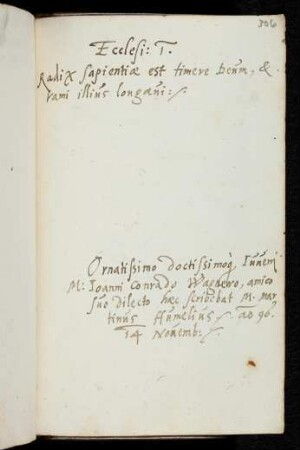 306
Ecclesi: I.
Radix sapientiæ est timere Deum, &
rami illius longævi:
Ornatissimo doctissimoq Iuveni
M: Ioanni Conrado Wagnero, amico
suo dilecto hæc scribebat M. Mar
tinus Humelius aō 96.
14 Novemb.